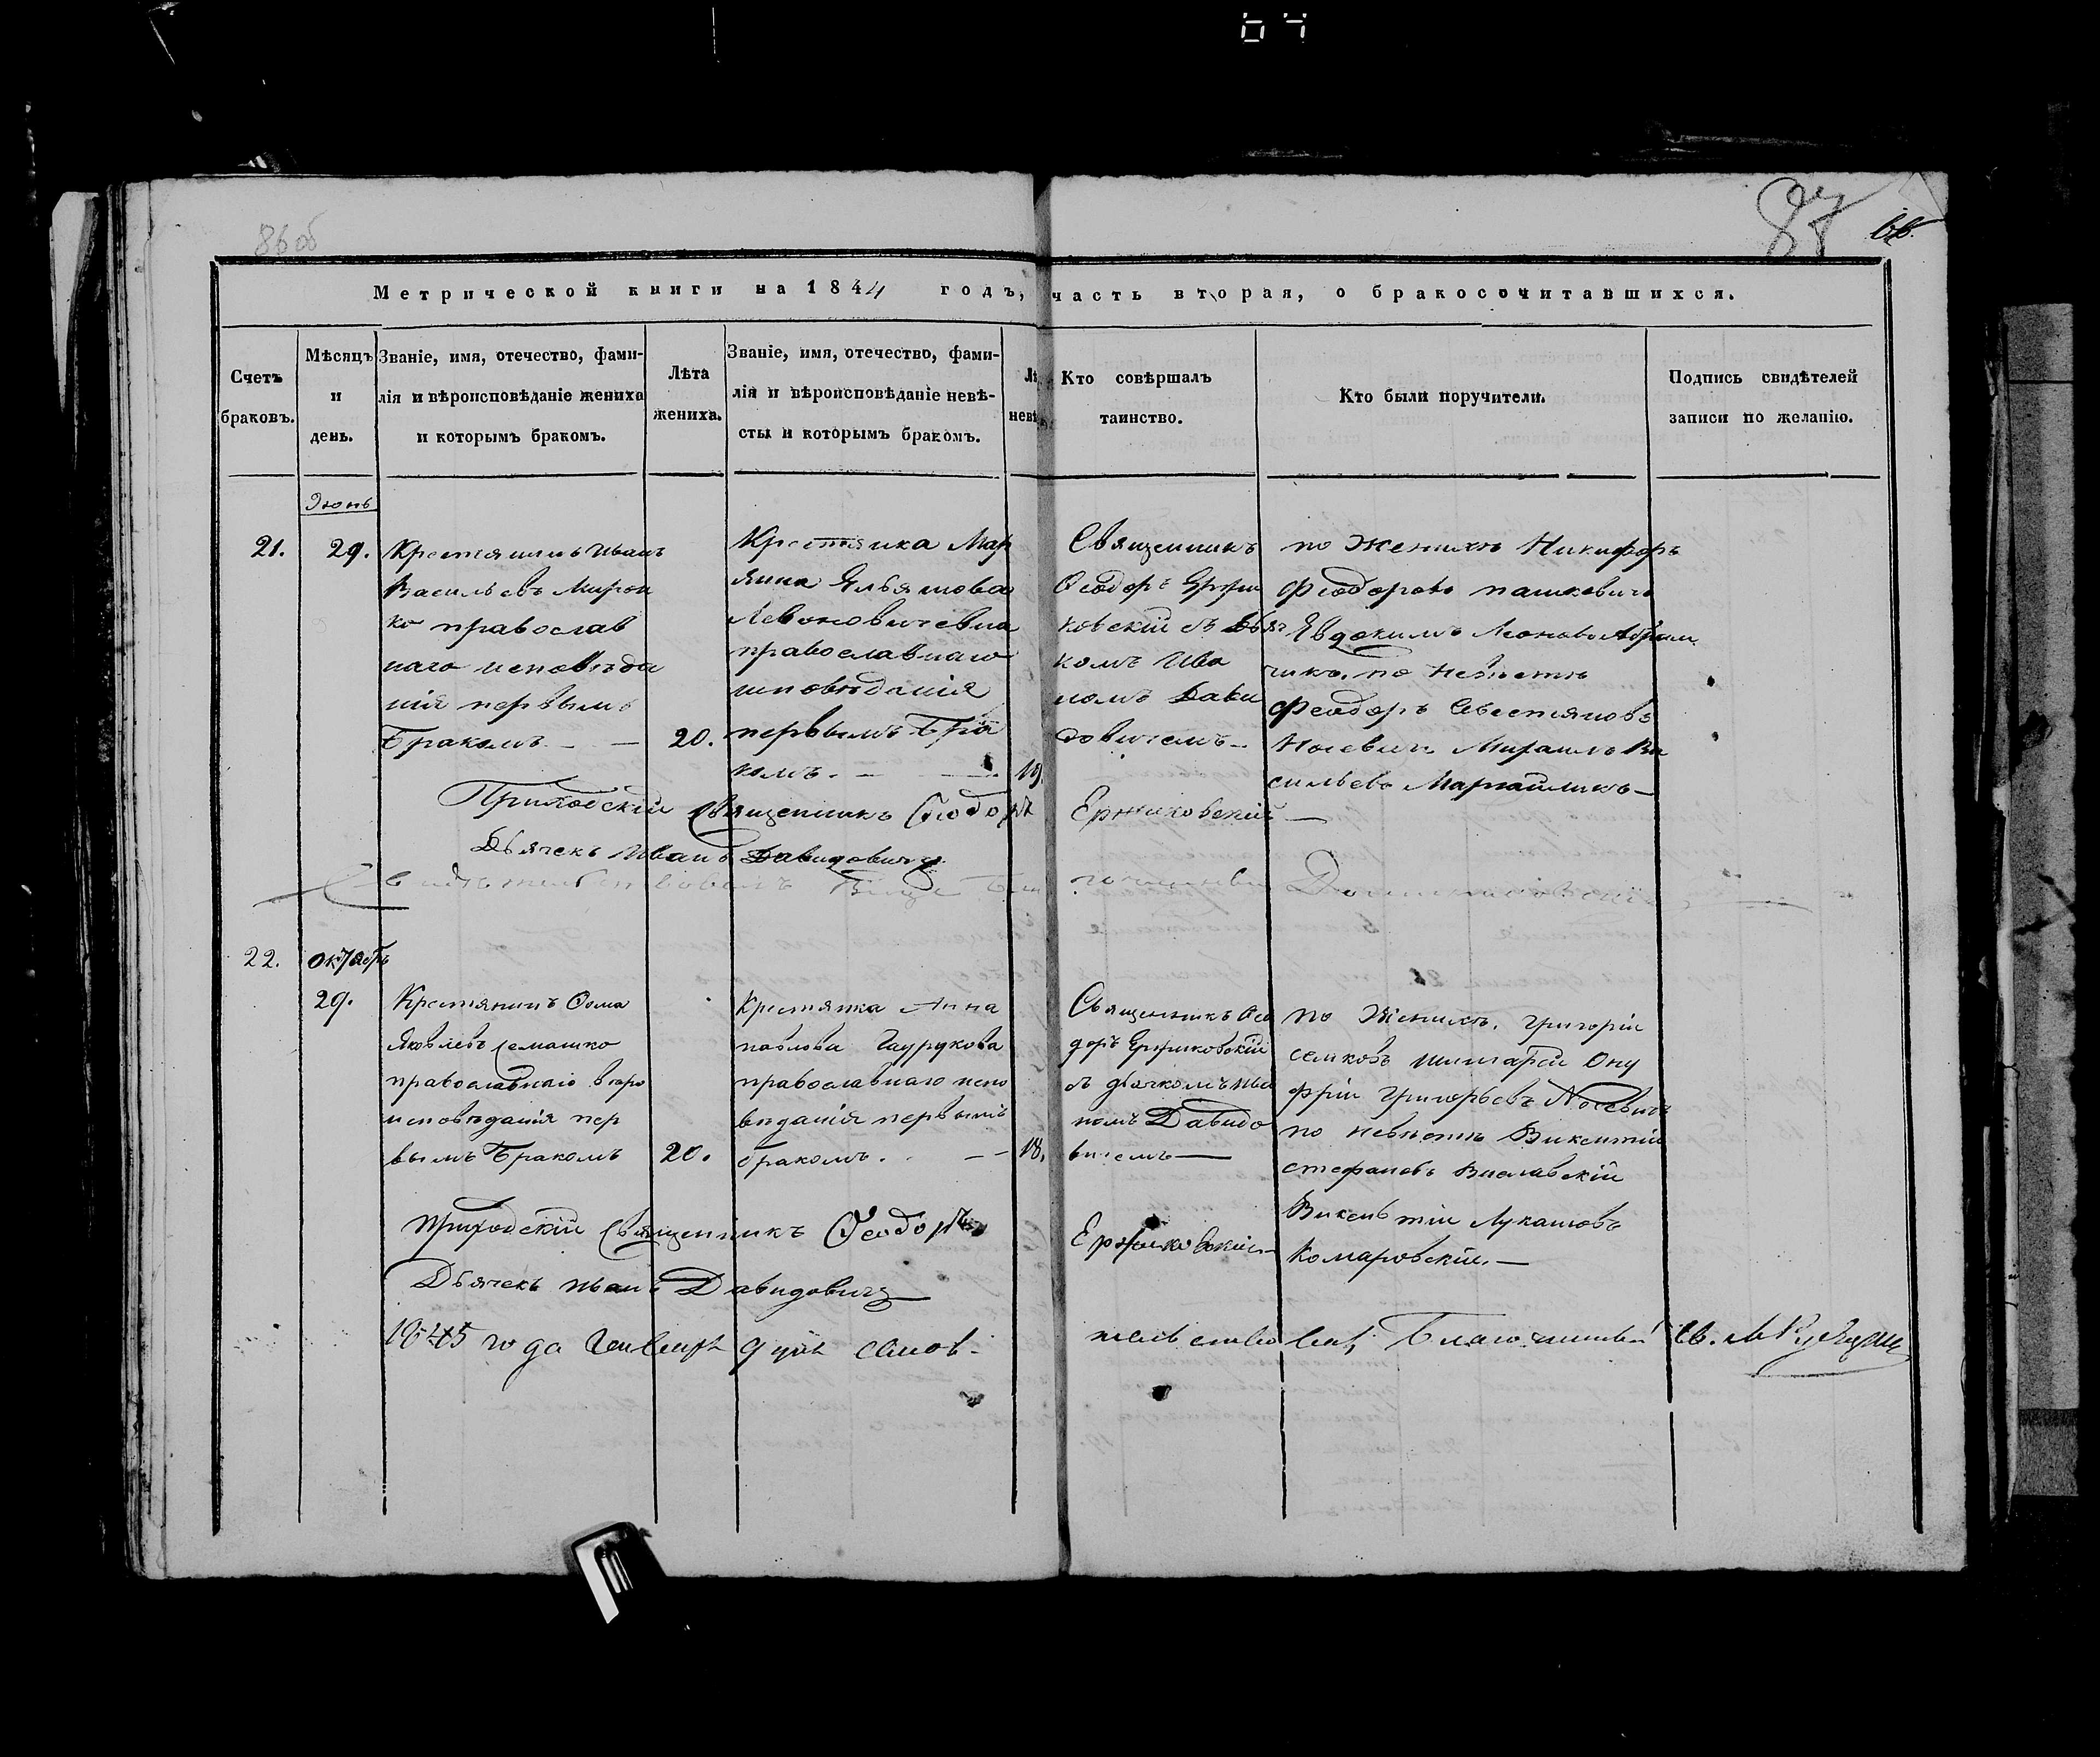 86 об
87
66.
Метрической книги на 1844 годъ, часть вторая, о бракосочитавшихся.
Счетъ
браковъ.
Мѣсяцъ
и
день.
Званіе, имя, отечество, фами-
лія и вѣроисповѣданіе жениха
и которымъ бракомъ.
Лѣта
жениха.
Званіе, имя, отечество, фами-
лія и вѣроисповѣданіе невѣ-
сты и которымъ бракомъ.
Лѣ
невѣ
Кто совѣршалъ
таинство.
Кто были поручители.
Подпись свидѣтелей
записи по желанію.
Июнь
21.
29.
Крестянинъ Иванъ
Васильевъ Мирон
ко православ
наго исповѣда
нія первымъ
Бракомъ
20.
Крестянка Мар
Левоновичевна
православнаго
исповѣданія
первымъ Бра
комъ.
19.
Священникъ
Ѳеодоръ Ержи
ковскій съ Дья
комъ Ива
номъ Дави
довичемъ
по Женихѣ Никифоръ
Феодоровъ пашкевичъ
Явдокимъ Леоновъ
чикъ. по Невѣстѣ
Феодоръ Севестяновъ
Носевичъ Михаилъ Ва
сильевъ
Приходскій Священникъ Ѳеодоръ Ержиковскій
Дьячекъ Иванъ Давидовичъ
22.
октябрь
29.
Крестянинъ Ѳома
Яковлевъ Семашко
православнаго вѣро
исповѣданія пер
вымъ Бракомъ
20.
Крестянка Анна
павлова Гаурукова
православнаго испо
вѣданія первымъ
бракомъ.
18.
Священникъ Ѳео
доръ Ержиковскій
съ дьячкомъ Ива
номъ Давидо
вичемъ
по Женихѣ. Григорій
Ону
фрій Григорьевъ Носевичъ
по невѣстѣ Викентій
стефановъ Виславскій
Викентій Лукашовъ
Комаровскій.
Приходскій Священникъ Ѳеодоръ Ержиковскій
Дьячекъ Иванъ Давидовичъ
1845 года Генваря 9 дня Благочинный